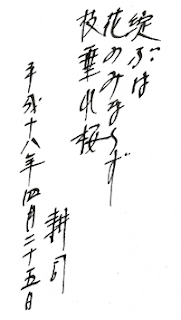 綻ぶは
花のみならず
枝垂れ桜
耕司
平成十八年四月二十五日